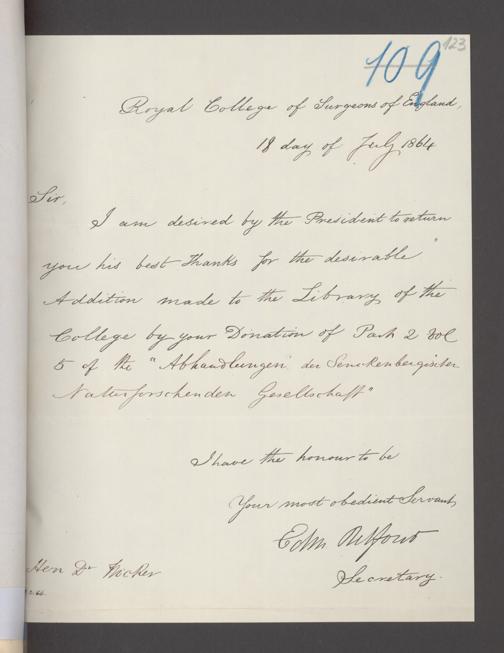 109
123
Royal College of Surgeons of England,
18 day of July 1864
Sir,
I am desired by the President to return
you his best Thanks for the desirable
Addition made to the Library of the
College by your Donation of Part 2 Vol
5 of the "Abhandlungen der Senckenbergischen
Naturforschenden Gesellschaft"
I have the honour to be
Your most obedient Servant,
Edm Belfour
Secretary.
Herr Dr